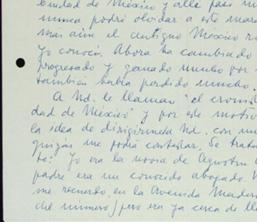 Ciudad de México y allá pasé mi
nunca podré olvidar a este mara
Mas aún el antiguo México
yo conocí. Ahora ha cambiado
progresado y ganado mucho por
también había perdido mucho.
A Ud. le llaman "el cronist
dad de México" y por este motivo
la idea de dirigirme a Ud. con un
quizás me podrá contestar. Se trata
to: Yo era la novia de Agustín
padre era un conocido abogado. V
me recuerdo, en la Avenida Madero
del número) pero era ya cerca de